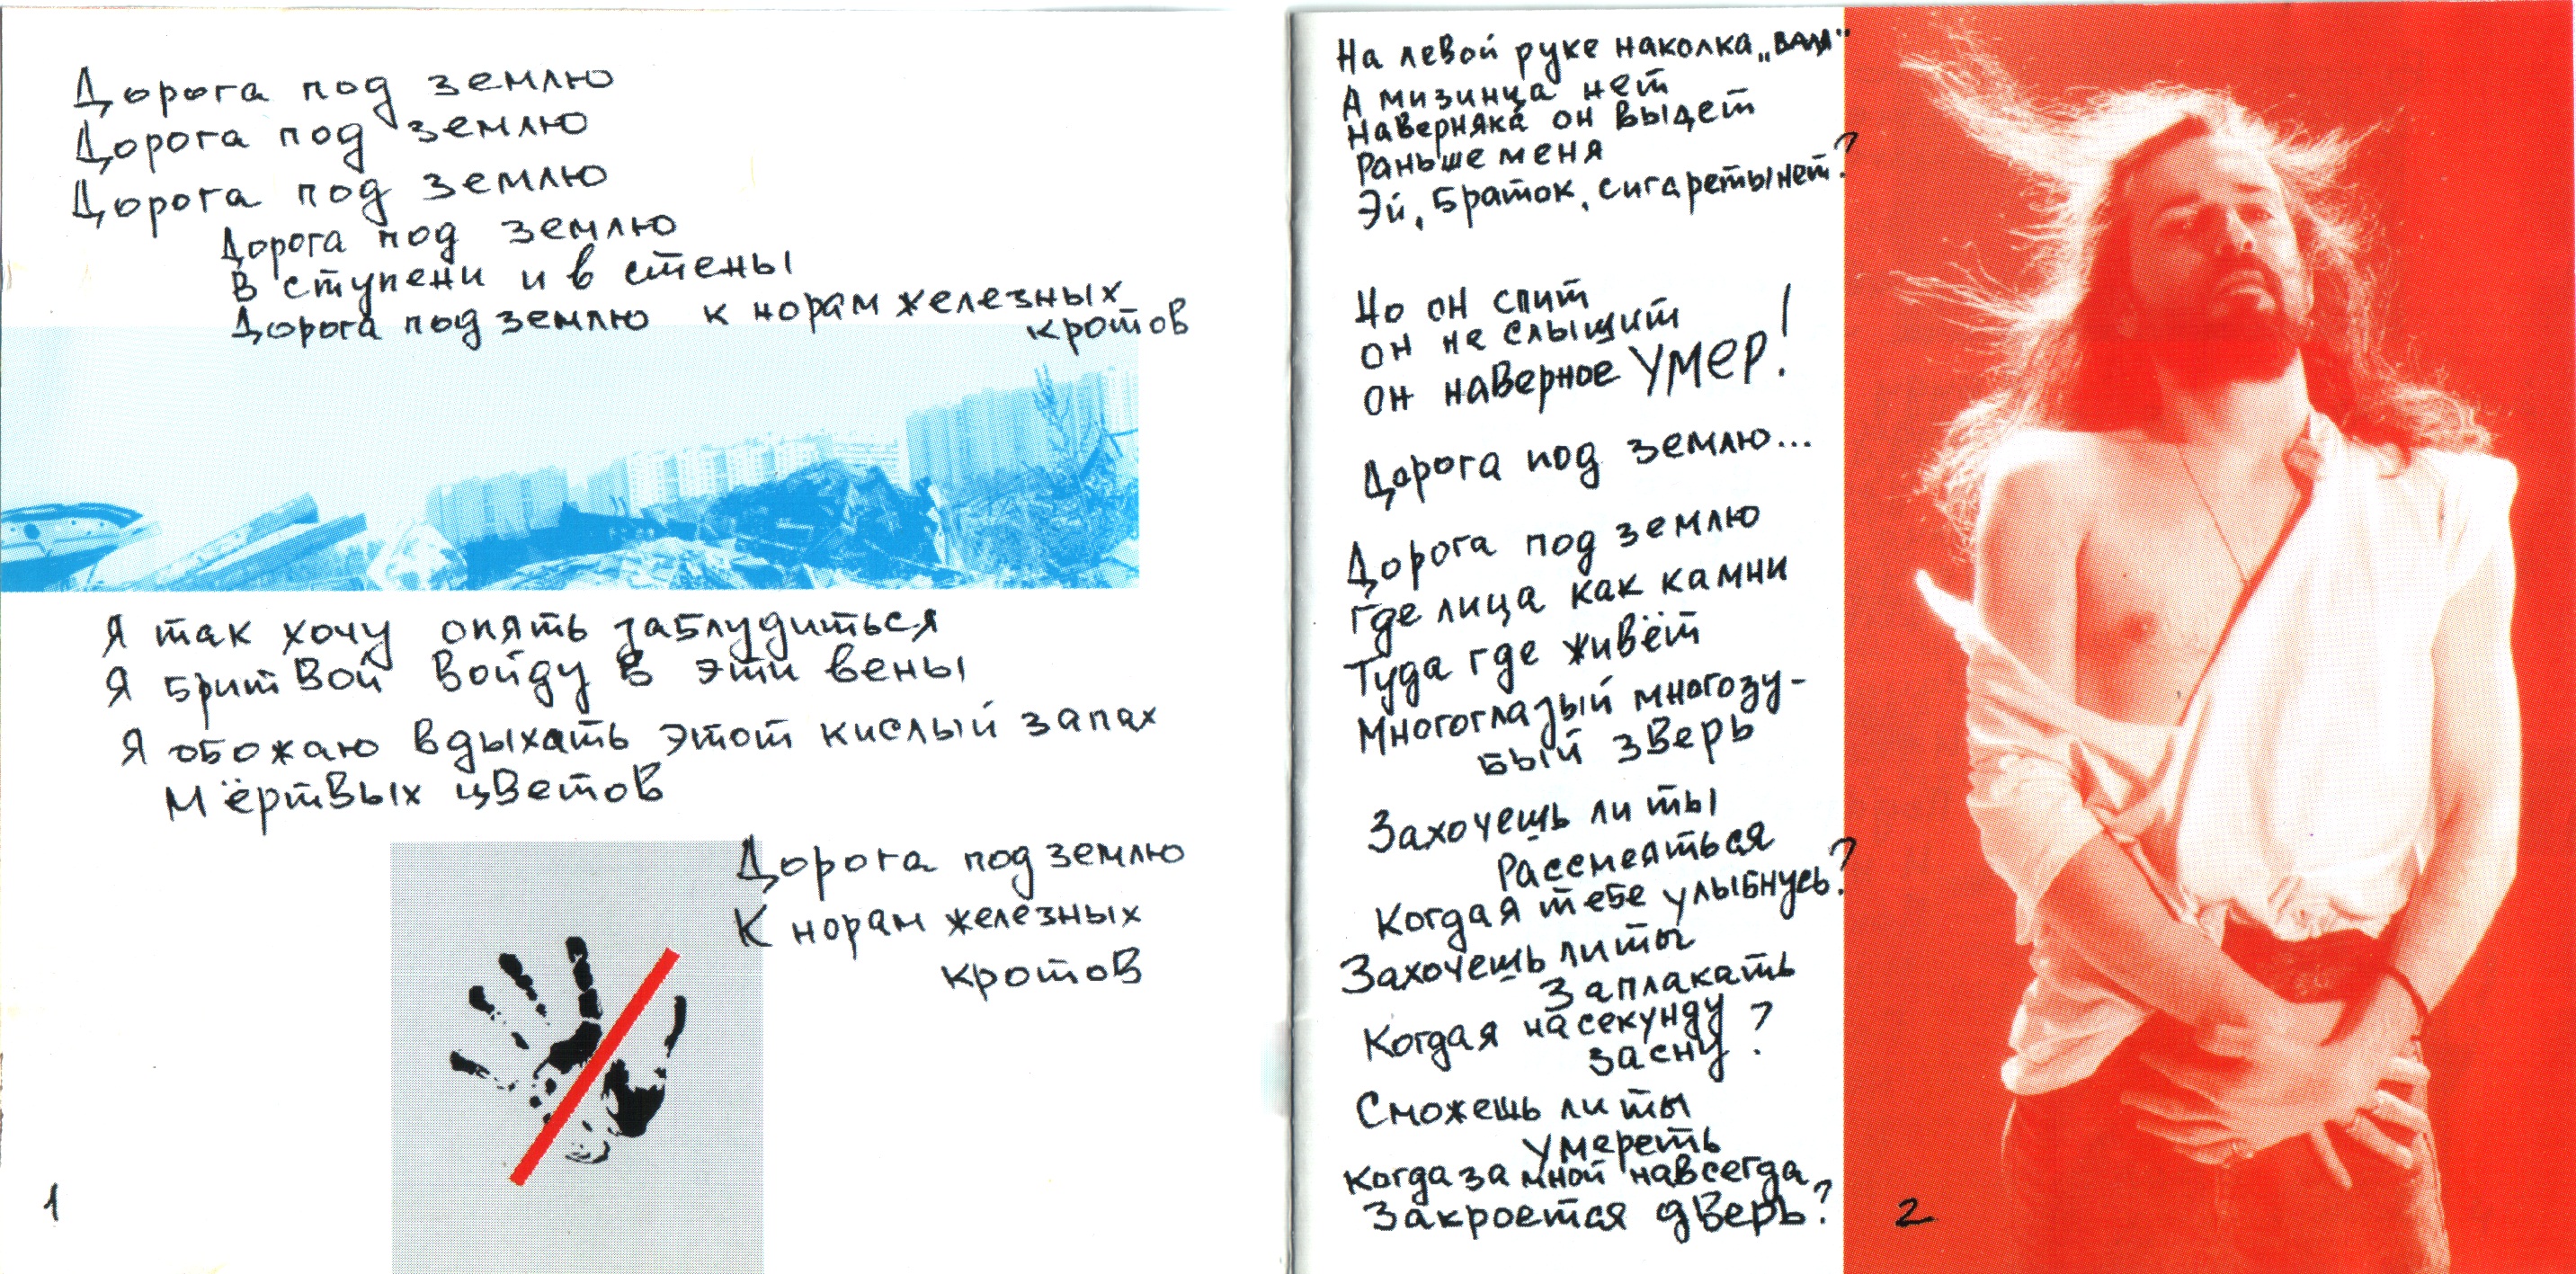 Дорога под землю
Дорога под землю
Дорога под землю
Дорога под землю
В ступени и в стены
Дорога под землю к норам железных
кротов
Я так хочу опять заблудиться
Я бритвой войду в эти вены
Я обожаю вдыхать этот кислый запах
Мёртвых цветов
Дорога под землю
К норам железных
кротов
1
На левой руке наколка „ВАЛЯ“
А мизинца нет
Наверняка он выдет
Раньше меня
Эй, браток, сигареты нет?
Но он спит
Он не слышит
Он наверное умер!
Дорога под землю...
Дорога под землю
Где лица как камни
Туда где живёт
Многоглазый многозу-
бый зверь
Захочешь ли ты
Рассмеяться
Когда я тебе улыбнусь?
Захочешь ли ты
Заплакать
Когда я на секунду
засну?
Сможешь ли ты
умереть
Когда за мной навсегда
Закроется дверь?
2